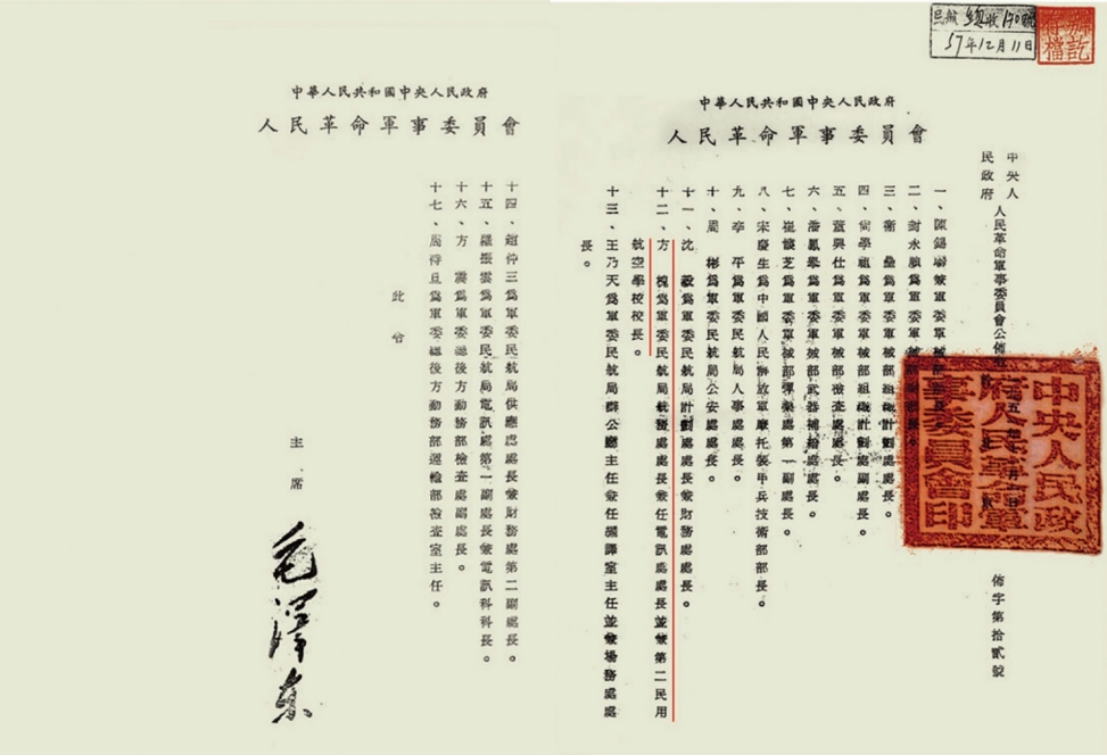 57年12月11日
中華人民共和國中央人民政府
人民革命軍事委員會
中央人
民政府
人民革命軍事委員會公佈
佈字第拾貳號
中央人民政
府人民革命軍
事委員會印
一、陳錫聯兼軍委軍械部
二、封永順爲軍委軍械部
三、衛 爲軍委軍械部組織計劃處處長。
四、尚學祖爲軍委軍械部組織計劃處副處長。
五、董興仕爲軍委軍械部檢查處處長。
六、潘鳳舉爲軍委軍械部武器補給處處長。
七、崔 芝爲軍委軍械部彈藥處第一副處長。
八、宋慶生爲中國人民解放軍摩托裝甲兵技術部部長。
九、辛 平爲軍委民航局人事處處長。
十、周 彬爲軍委民航局公安處處長。
十一、沈 毅爲軍委民航局計劃處處長兼財務處處長。
十二、方 槐爲軍委民航局航務處處長兼任電訊處處長並兼第二民用
航空學校校長。
十三、王乃天爲軍委民航局辦公廳主任兼任編譯室主任並兼場務處處
長。
中華人民共和國中央人民政府
人民革命軍事委員會
十四、趙仲三爲軍委民航局供應處處長兼財務處第二副處長。
十五、羅振雲爲軍委民航局電訊處第一副處長兼電訊科科長。
十六、方 震爲軍委總後方勤務部檢查處副處長。
十七、周待旦爲軍委總後方勤務部運輸部檢查室主任。
此令
主席
毛澤东